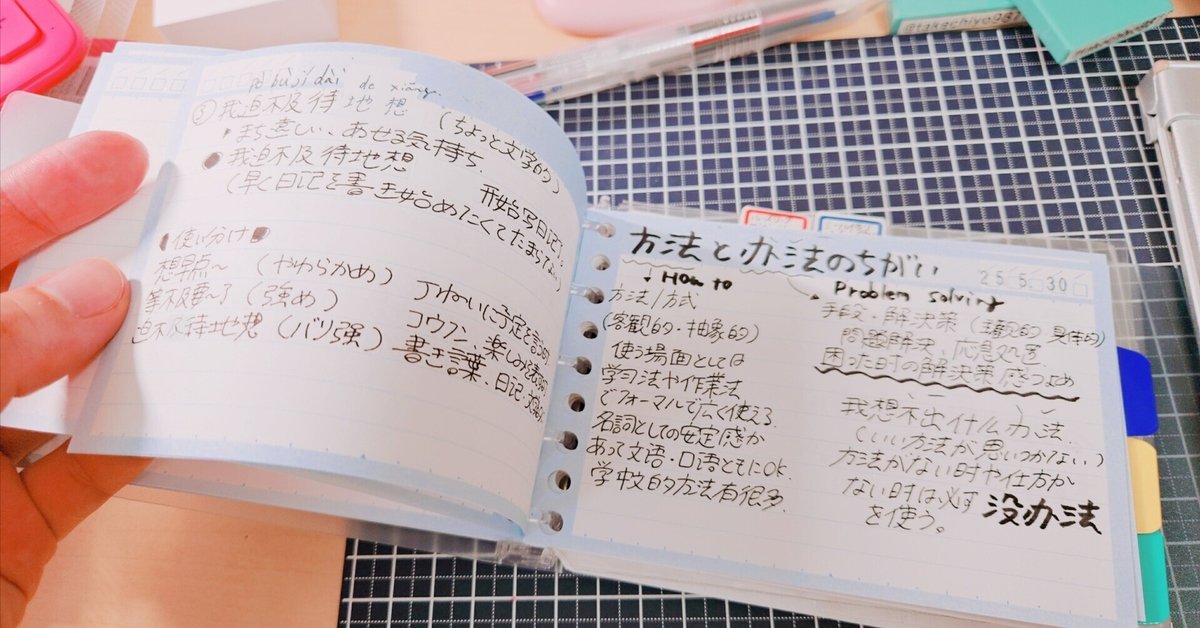 pò bù jí dài de xiǎng
③我迫不及待地想 (ちょっと文学的)
・まち遠しい、あせる気持ち.
●我迫不及待地想 开始写日记了
(早く日記を書き始めたくてたまらない)
●使い分け●
想早点〜 (やわらかめ) ていねいに予定を言う時
等不及要〜了 (強め) コウフン、楽しみ
迫不及待地想 (バリ強) 書き言葉、日記、
方法と办法のちがい
25 5 30
↓ How to
方法/方式
(客観的・抽象的)
使う場面としては
学习法や作業法
でフォーマルで広く使える
名詞としての安定感が
あって文語・口語ともにOK.
学中文的方法有很多.
Problem solving
・手段・解決策 (主観的 具体的)
問題解決、応急処置
困った時の解決策感つよめ
我想不出什么办法.
(いい方法が思いつかない)
方法がない時や仕方が
ない時は必ず没办法
を使う。
@takachiyo987